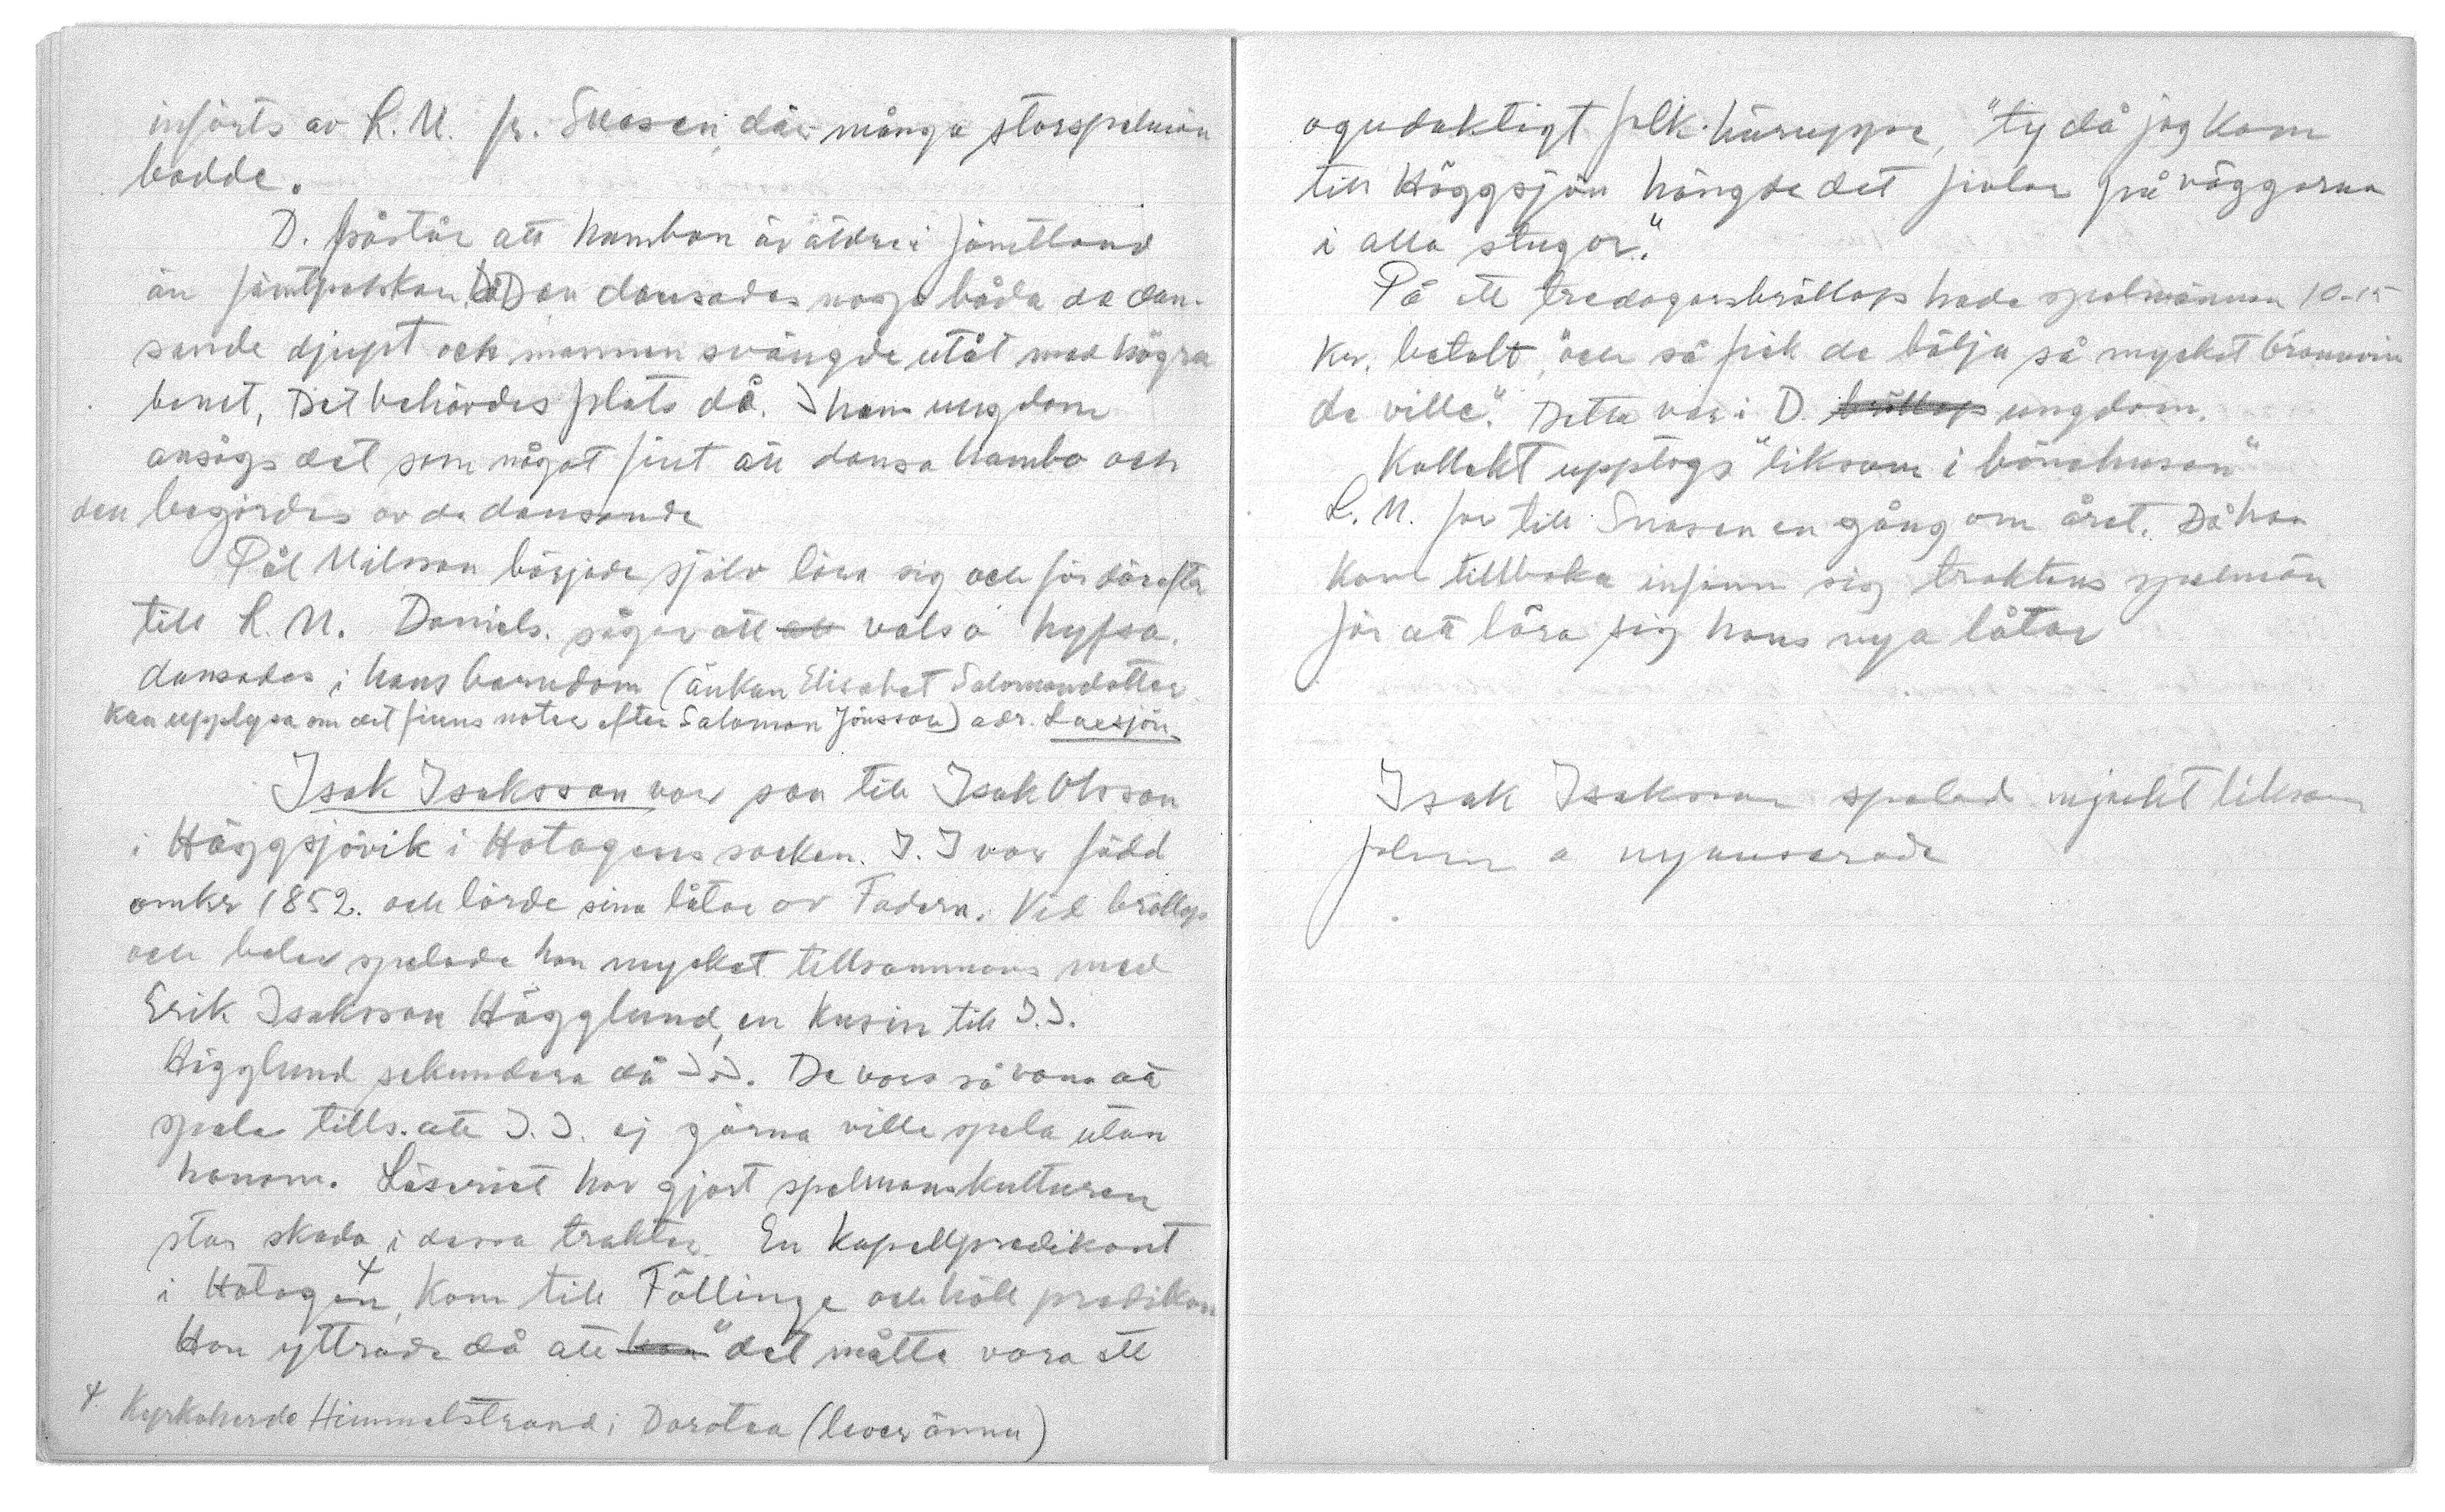 införts av L. N. fr. Snasen, där många storspelmän
bodde.
D. påstår att hambon är äldre i Jämtland
än jämtpolskan. Den dansades noga båda de dan-
sande djupt och mannen svängde utåt med högra
benet, Det behövdes plats då. I hans ungdom
ansågs det som något fint att dansa hambo och
den begärdes av de dansande
Pål Nilsson började själv lära sig och för därefter
till L. N. Daniels. säger att vals o hyfsa.
dansades i hans barndom (änkan Elisabet Salomondotter
kan upplysa om det finns noter efter Salomon Jönsson) adr. Laxsjön.
Isak Isaksson var son till Isak Olsson
i Häggsjövik i Hotagens socken. I. I var född
omkr 1852. och lärde sina låtar av Fadern. Vid bröllop
och baler spelade han mycket tillsammans med
Erik Isaksson Hägglund, en kusin till I. I.
Hägglund sekundera då I. I. De voro så vana att
spela tills. att I. I. ej gärna ville spela utan
honom. Läseriet har gjort spelmanskulturen
stor skada i dessa trakter. En kapellpredikant
i Hotagen, kom till Föllinge och höll predikan
Han yttrade då att han "det måtte vara ett
x Kyrkoherde Himmelstrand i Dorotea (lever ännu)
ogudaktigt folk häruppe, "ty då jag kom
till Häggsjön hängde det fioler på väggarna
i alla stugor."
På ett tredagarsbröllop hade spelmännen 10-15
kr. betalt, "och så fick de bälja så mycket brännvin
de ville". Detta var i D. bröllop ungdom.
Kollekt upptogs "liksom i bönehusen"
L. N. for till Snasen en gång om året. Då han
kom tillbaka infann sig traktens spelmän
för att lära sig hans nya låtar
Isak Isaksson spelad mjukt liksom
o nyanserade